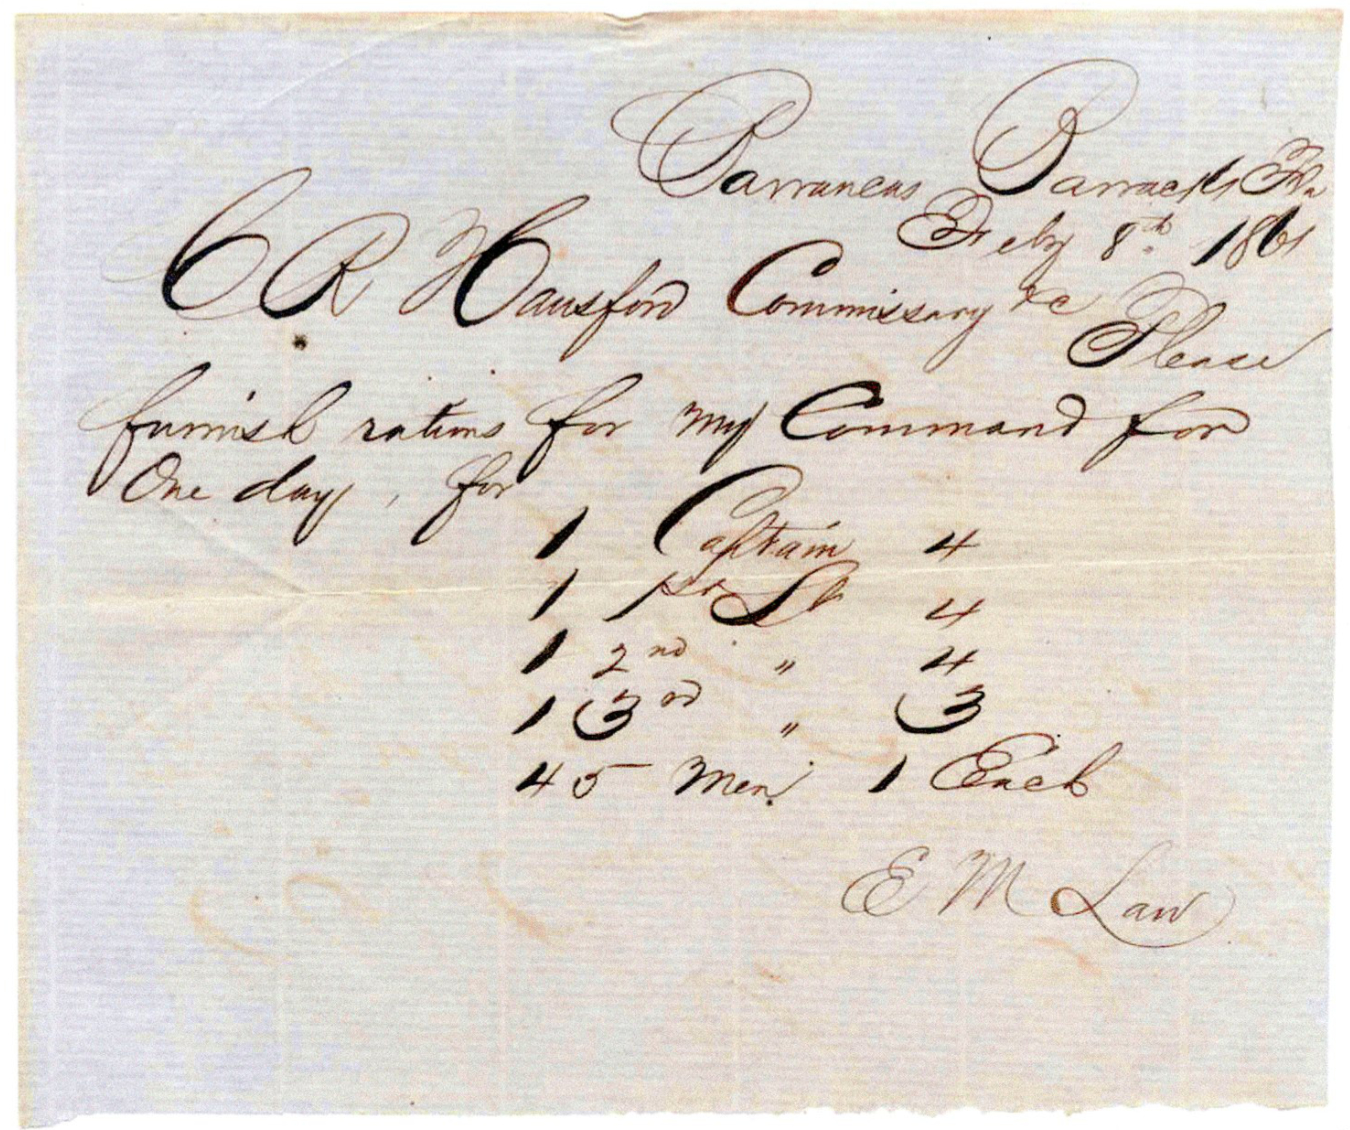 Barrancas Barracks Fla
Feby 8th 1861
C R Hansford Commissary &c
Please
furnish rations for my Command for
One day, for
1 Captain 4
1 1st Lt 4
1 2nd " 4
1 3rd " 3
45 Men 1 Each
E M Law